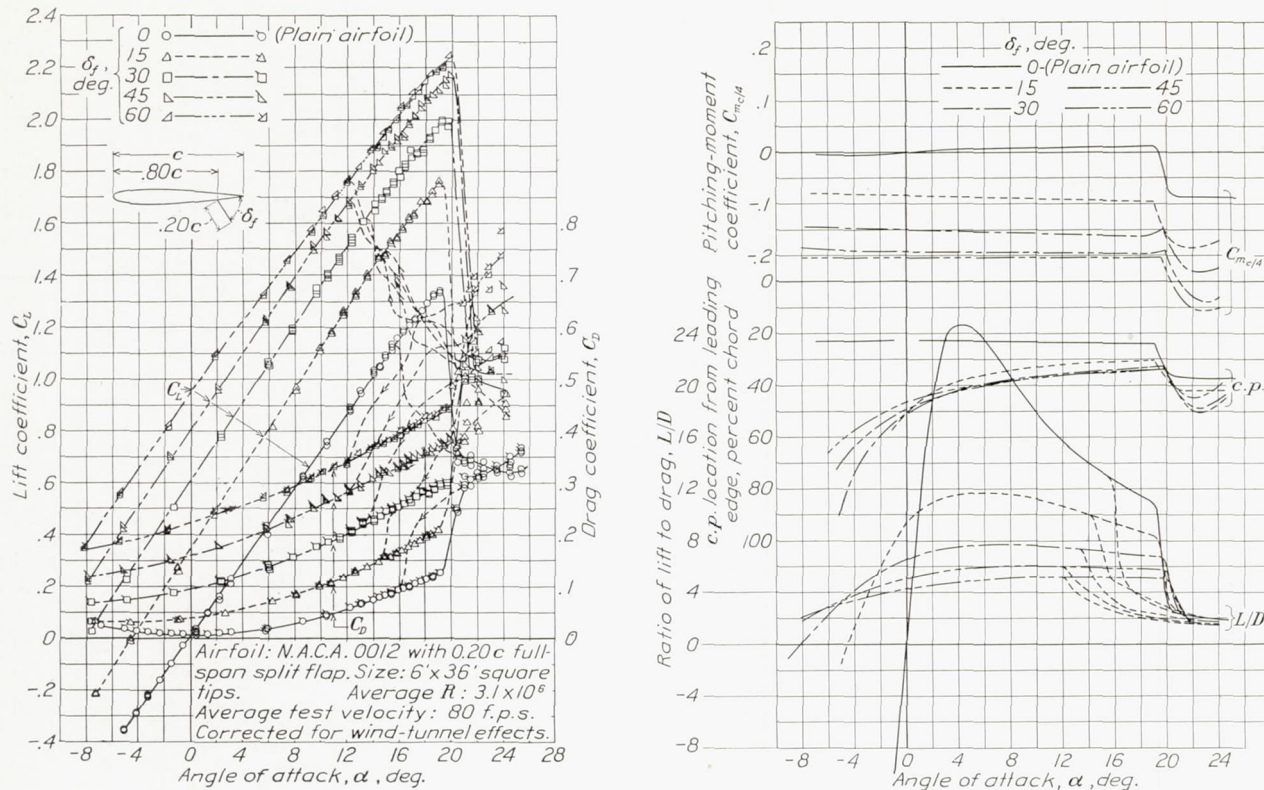 2.4
2.2
2.0
1.8
1.6
1.4
1.2
1.0
.8
.6
.4
.2
0
-.2
-.4
Lift coefficient, C_L
δ_f, deg.
0 (Plain airfoil)
15
30
45
60
c
.80c
.20c
δ_f
C_L
C_D
.8
.7
.6
.5
.4
.3
.2
.1
0
Drag coefficient, C_D
Airfoil: N.A.C.A. 0012 with 0.20c full-
span split flap. Size: 6'x 36' square
tips. Average R: 3.1x10⁶
Average test velocity: 80 f.p.s.
Corrected for wind-tunnel effects.
-8 -4 0 4 8 12 16 20 24 28
Angle of attack, α, deg.
Pitching-moment
coefficient, C_mc/4
.2
.1
0
-.1
-.2
δ_f, deg.
0-(Plain airfoil)
15 45
30 60
C_mc/4
c.p. location from leading
edge, percent chord
0
20
40
60
80
100
c.p.
Ratio of lift to drag, L/D
24
20
16
12
8
4
0
-4
-8
L/D
-8 -4 0 4 8 12 16 20 24
Angle of attack, α, deg.